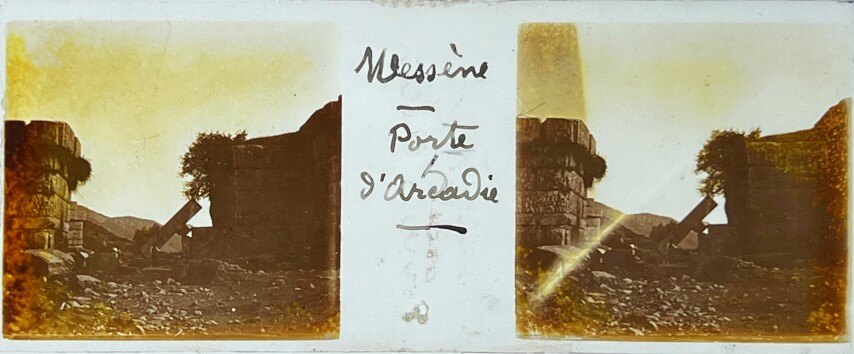 Messène
Porte
d'Arcadie